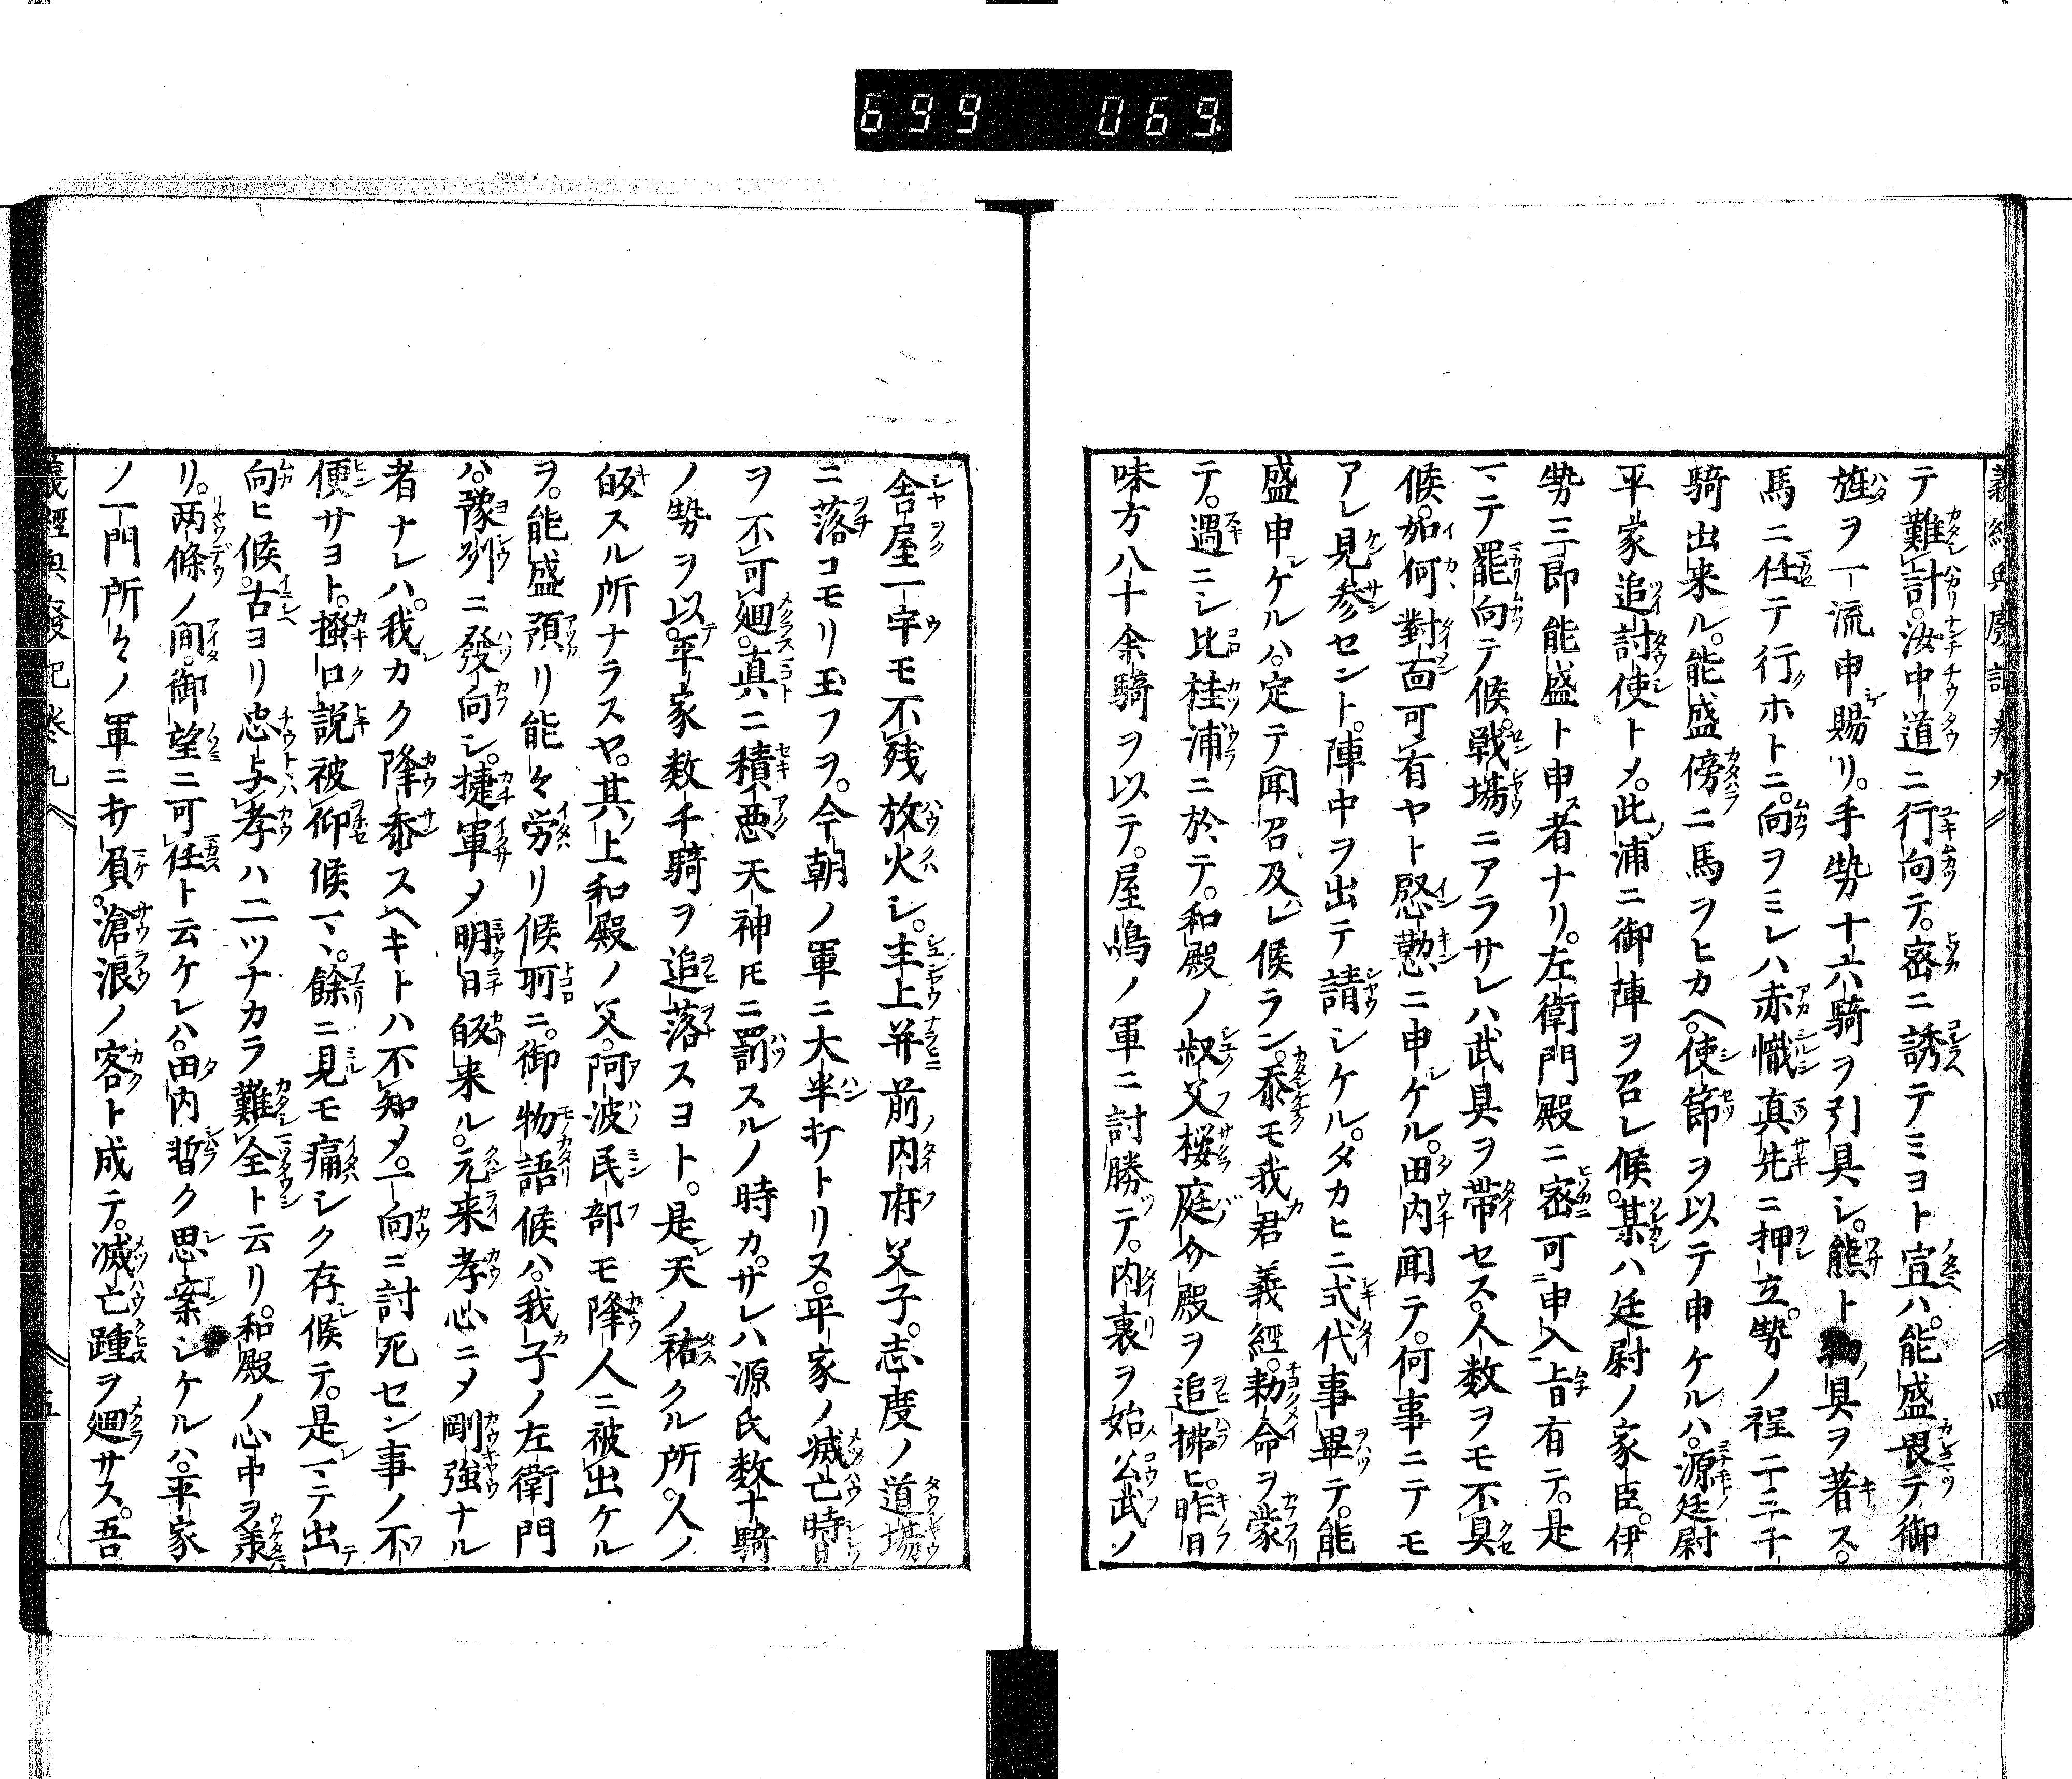 699 069
義經興廢記卷九 四
テ難計汝中道ニ行向テ密ニ誘テミヨト宣ハ能盛畏テ御
旌ヲ一流申賜リ手勢十六騎ヲ引具シ熊ト物具ヲ著ス
馬ニ任テ行ホトニ向ヲミレハ赤幟真先ニ押立勢ノ程二三千
騎出来ル能盛傍ニ馬ヲヒカヘ使節ヲ以テ申ケルハ源廷尉
平家追討使トメ此浦ニ御陣ヲ召レ候某ハ廷尉ノ家臣伊
勢三郎能盛ト申者ナリ左衛門殿ニ密可申入旨有テ是
マテ罷向テ候戦場ニアラサレハ武具ヲ帯セス人数ヲモ不具
候如何對面可有ヤト慇懃ニ申ケル田内聞テ何事ニテモ
アレ見参セント陣中ヲ出テ請シケルタカヒニ式代事畢テ能
盛申ケルハ定テ聞召及レ候ラン忝モ我君義經勅命ヲ蒙
テ過ニシ比桂浦ニ於テ和殿ノ叔父桜庭介殿ヲ追拂ヒ昨日
味方八十余騎ヲ以テ屋嶋ノ軍ニ討勝テ内裏ヲ始公武ノ
舎屋一宇モ不残放火シ主上并前内府父子志度ノ道場
ニ落コモリ玉フヲ今朝ノ軍ニ大半打トリヌ平家ノ滅亡時日
ヲ不可廻真ニ積悪天神氏ニ罰スルノ時カサレハ源氏数十騎
ノ勢ヲ以平家数千騎ヲ追落スヨト是天ノ祐クル所人ノ
皈スル所ナラスヤ其上和殿ノ父阿波民部モ降人ニ被出ケル
ヲ能盛預リ能々労リ候所ニ御物語候ハ我子ノ左衛門
ハ豫州ニ發向シ捷軍メ明日皈来ル元来孝心ニメ剛強ナル
者ナレハ我カク降参スヘキトハ不知メ一向ニ討死セン事ノ不
便サヨト掻口説被仰候マヽ餘ニ見モ痛シク存候テ是マテ出
向ヒ候古ヨリ忠与孝ハ二ツナカラ難全ト云リ和殿ノ心中ヲ承
リ両條ノ間御望ニ可任ト云ケレハ田内暫ク思案シケルハ平家
ノ一門所々ノ軍ニ打負滄浪ノ客ト成テ滅亡踵ヲ廻サス吾
義經興廢記卷九 五